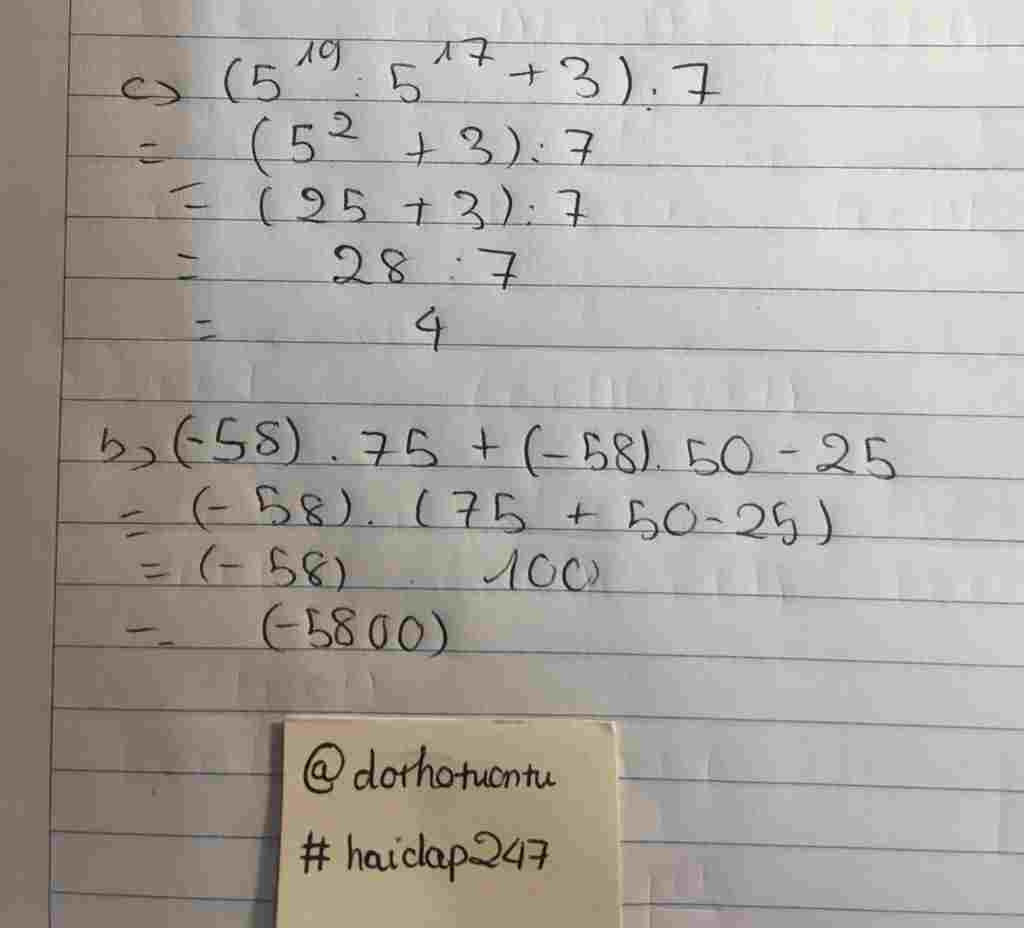 c) (5^19 : 5^17 + 3) : 7
= (5^2 + 3) : 7
= (25 + 3) : 7
= 28 : 7
= 4
b, (-58) . 75 + (-58) . 50 - 25
= (-58) . (75 + 50 - 25)
= (-58) . 100
= (-5800)
@dorhotuontu
# haidap247